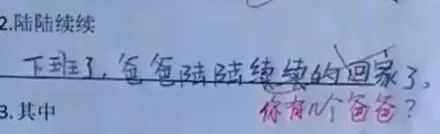 2.陆陆续续
下班了,爸爸陆陆续续的回家了。
3.其中
你有几个爸爸？